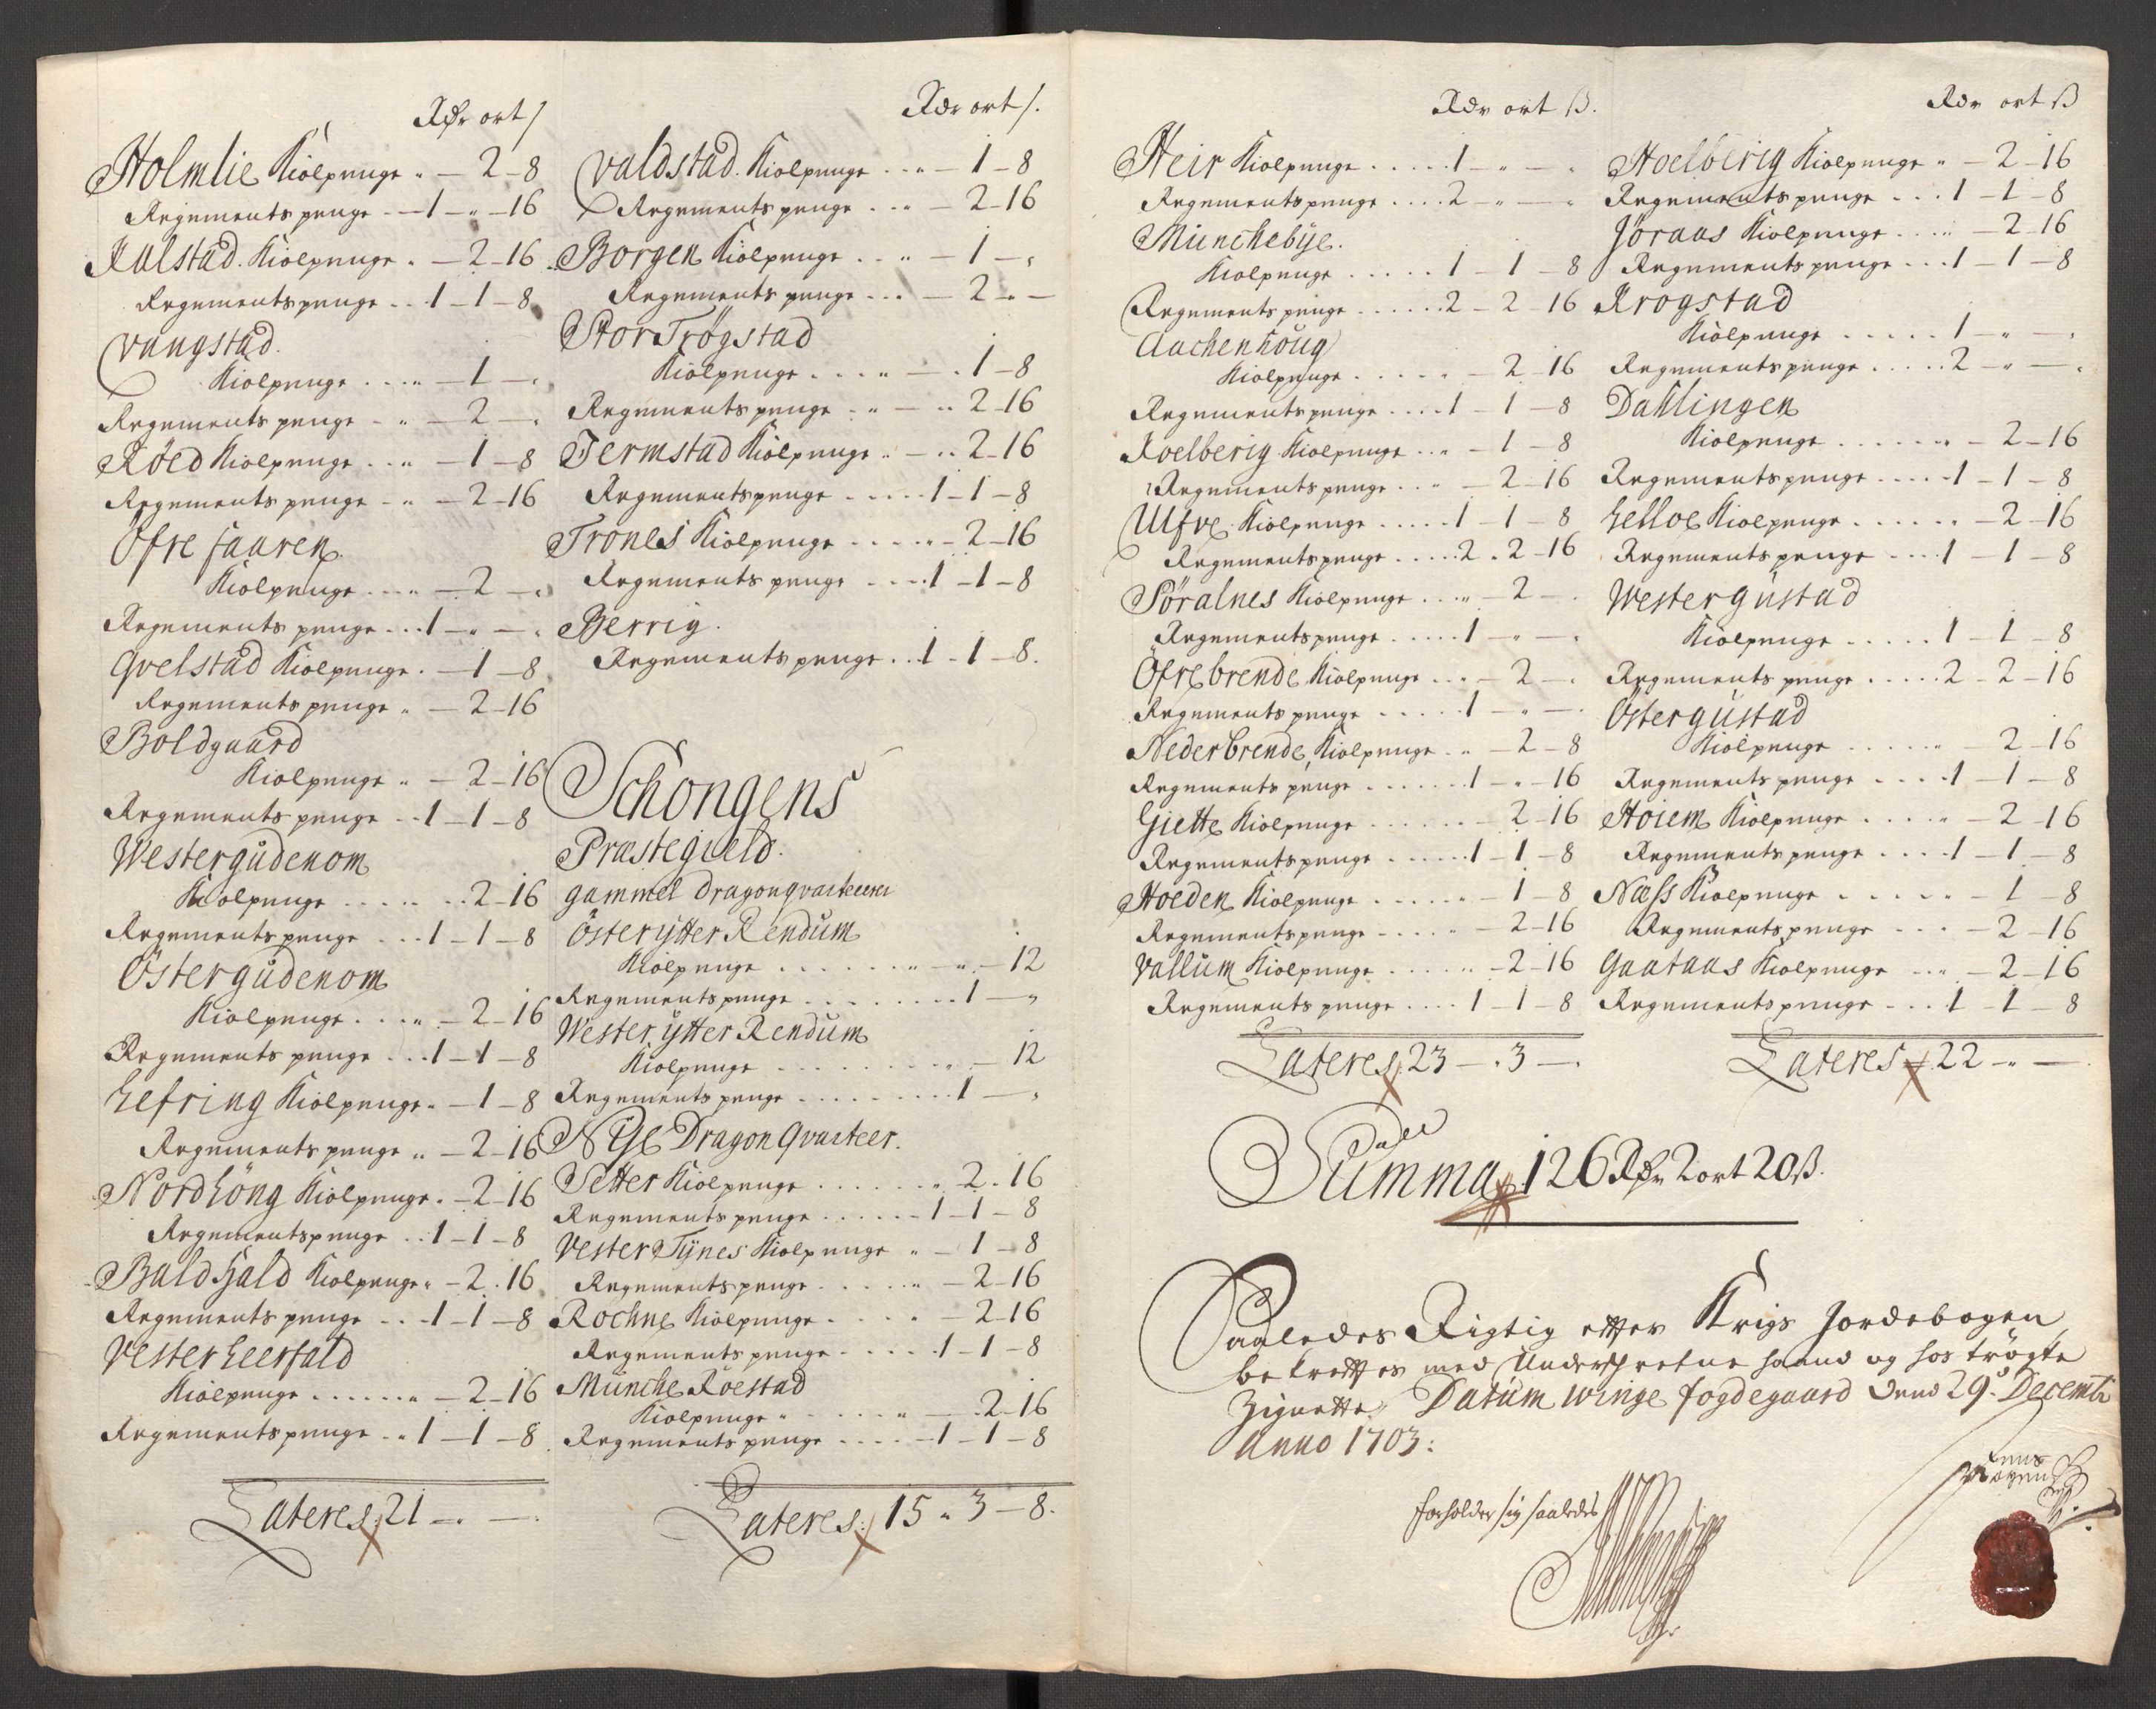 Rdr ort s
Holmlie Kiolpenge " — 2 – 8
Regementspenge - — 1 — " — 16
Kalstad Kiolpenge . — 2 – 16
Regementspenge . . 1 – 1 – 8
Vangstad.
Kiolpenge . . . " — 1 — "
Regements penge - " — 2 — "
Röed Kiolpenge . . " — 1 – 8
Regements penge - " — 2 – 16
Öfre faaren
Kiolpenge . . . " — 2 — "
Regements penge . . . 1 — " — "
Qvelstad Kiolpenge . — 1 – 8
Regements penge " — 2 – 16
Boldgaard
Kiolpenge " — 2 – 16
Regements penge . . 1 – 1 – 8
Westergudenom
Kiolpenge . . . . . . 2 – 16
Regementspenge . . . 1 – 1 – 8
Östergudenom
Kiolpenge . . . " — 2 – 16
Regements penge . . . 1 – 1 – 8
Hefring Kiolpenge " — 1 – 8
Regements penge " — 2 – 16
Nordhöng Kiolpenge . — 2 – 16
Regementspenge . . 1 – 1 – 8
Baldhald Kiolpenge " — 2 . 16
Regements penge . . . 1 – 1 – 8
Vester Heerfald
Kiolpenge . . . . . " — 2 – 16
Regementspenge . . 1 – 1 – 8
Lateres: 21 — " — "
Rdr ort s.
Valdstad. Kiolpenge . . " — 1 – 8
Regements penge . . " — 2 – 16
Borgen Kiolpenge . . " — 1 — "
Regements penge . . . — 2 " —
Stor Trögstad
Kiolpenge . . . . " — . 1 – 8
Regements penge . " — . . 2 – 16
Termstad Kiolpenge " — . . 2 – 16
Regementspenge . . . . . 1 – 1 – 8
Trones Kiolpenge . . . . " – 2 – 16
Regements penge . . . . 1 – 1 – 8
Berrig.
Regements penge . . 1 – 1 – 8.
Schongens
Præstegield.
gammel Dragonqvarteerer
Öster ytter Rendum
Kiolpenge . . . . . . " — " — 12
Regementspenge . . . . . . . . 1 — "
Wester ytter Rendum
Kiolpenge . . . . . . . . " — 12
Regements penge . . . . . . . . 1 — "
Nye Dragon Qvarteer.
Setter Kiolpenge . . . . . . " 2 . 16
Regements penge . . . . . . 1 – 1 – 8
Vester Tynes Kiolpenge " — 1 – 8
Regements penge . . . . . " — 2 – 16
Rochne Kiolpenge . . . . . — 2 – 16
Regements penge . . . . . 1 – 1 – 8
Münche Roestad
Kiolpenge " . . . . . " — . 2 – 16
Regements penge . . . . . 1 – 1 – 8
Lateres: 15 " 3 – 8.
Rdr ort ß.
Heir Kiolpenge . . . . . 1 — " — "
Regementspenge . . . . 2 — " — "
Münchebye.
Kiolpenge . . . . . 1 – 1 – 8
Regements penge . . . . . . 2 – 2 – 16
Aachenhoug
Kiolpenge . . . . . " – 2 – 16
Regements penge . . . . 1 – 1 – 8
Roelberig Kiolpenge . . " — 1 – 8
Regements penge . . " — 2 – 16
Ulfve Kiolpenge . . . . . 1 – 1 – 8
Regementspenge . . . . 2 . 2 – 16
Söralnes Kiolpenge . . . " — 2 — .
Regementspenge . . . . . 1 — " — "
Öfrebrende Kiolpenge . . . — 2 — .
Regements penge . . . . . 1 — " — .
Nederbrende Kiolpenge . " — 2 – 8
Regements penge . . . . . . . 1 — " – 16
Giette Kiolpenge . . . . . . — 2 – 16
Regements penge . . . . . . 1 – 1 – 8
Hoeden Kiolpenge . . . . . " — 1 – 8
Regementspenge . . . . . " — 2 – 16
Vallum Kiolpenge . . . . . " – 2 – 16
Regements penge . . . . 1 – 1 – 8
Lateres: 23 — " 3 — .
Rdr ort ß
Hoelberig Kiolpenge " — 2 – 16
Regements penge . . . 1 – 1 – 8
Jöraas Kiolpenge . . . " — 2 16
Regements penge . . . 1 – 1 – 8
Krogstad
Kiolpenge . . . . . 1 — " — .
Regements penge . . . . . 2 — " — .
Dahlingen
Kiolpenge . . . . . . " — 2 – 16
Regements penge . . . . . 1 – 1 – 8
Helloe Kiolpenge . . . . . " — 2 – 16
Regements penge . . . . 1 – 1 – 8
Westergustad
Kiolpenge . . . . . 1 – 1 – 8
Regements penge . . . . . 2 – 2 – 16
Östergustad
Kiolpenge . . . . . " 2 – 16
Regements penge . . . . 1 – 1 – 8
Hoiem Kiolpenge . . . . . " — 2 – 16
Regements penge . . . . 1 – 1 – 8
Næss Kiolpenge . . . . . " — 1 – 8
Regements penge . . . — 2 – 16
Gaataas Kiolpenge . . . " — 2 – 16
Regements penge . . . 1 – 1 – 8
Lateres 22 — " — .
Summa 126 Rdr 2 ort 20 ß.
Saaledes Rigtig effter Krigs Jordebogen
bekrefftes med Underschrefne haand og hos trögte
Zignette, Datum Winge fogdegaard dend 29: Decembr
Anno 1703:
forholder sig saaledes